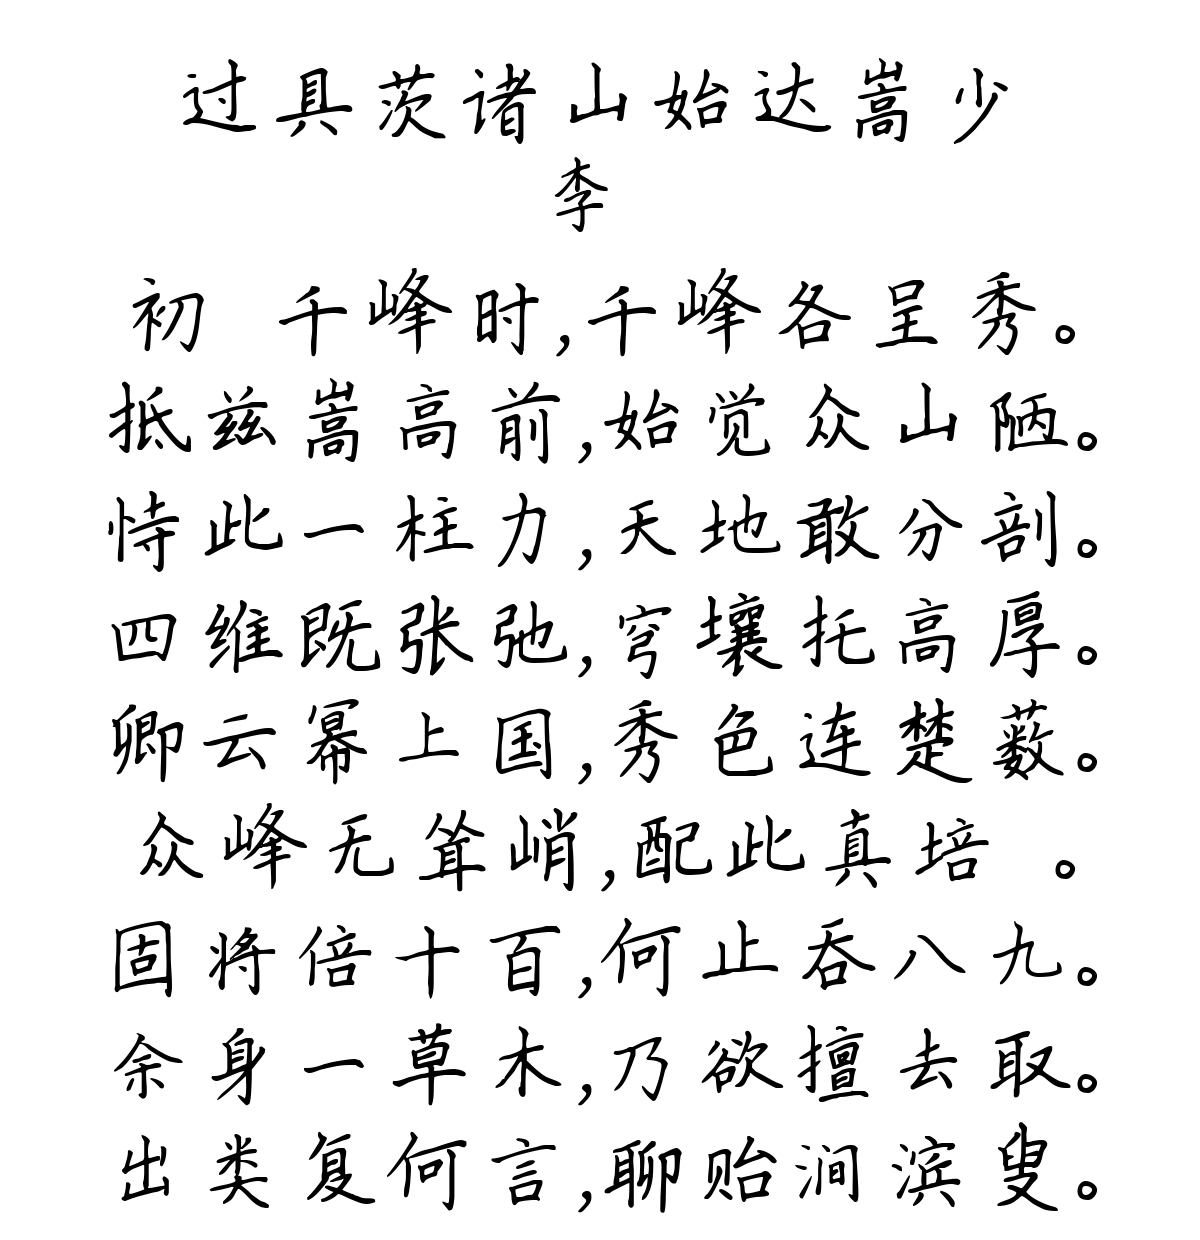 过具茨诸山始达嵩少
李
初 千峰时,千峰各呈秀。
抵兹嵩高前,始觉众山陋。
恃此一柱力,天地敢分剖。
四维既张弛,穹壤托高厚。
卿云幂上国,秀色连楚薮。
众峰无耸峭,配此真培 。
固将倍十百,何止吞八九。
余身一草木,乃欲擅去取。
出类复何言,聊贻涧滨叟。